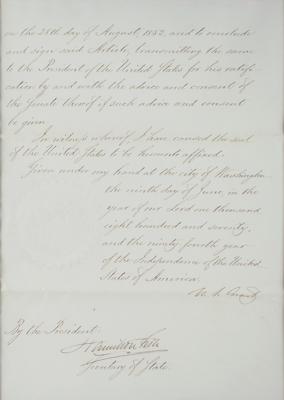 on the 28th day of August, 1852, and to conclude
and sign said Article, transmitting the same
to the President of the United States for his ratifi-
cation by and with the advice and consent of
the Senate thereof if such advice and consent
be given.
In witness whereof, I have caused the seal
of the United States to be hereunto affixed.
Given under my hand at the city of Washington
the ninth day of June, in the
year of our Lord one thousand
eight hundred and seventy,
and the ninety-fourth year
of the Independence of the United
States of America.
U. S. Grant
By the President:
Hamilton Fish
Secretary of State.